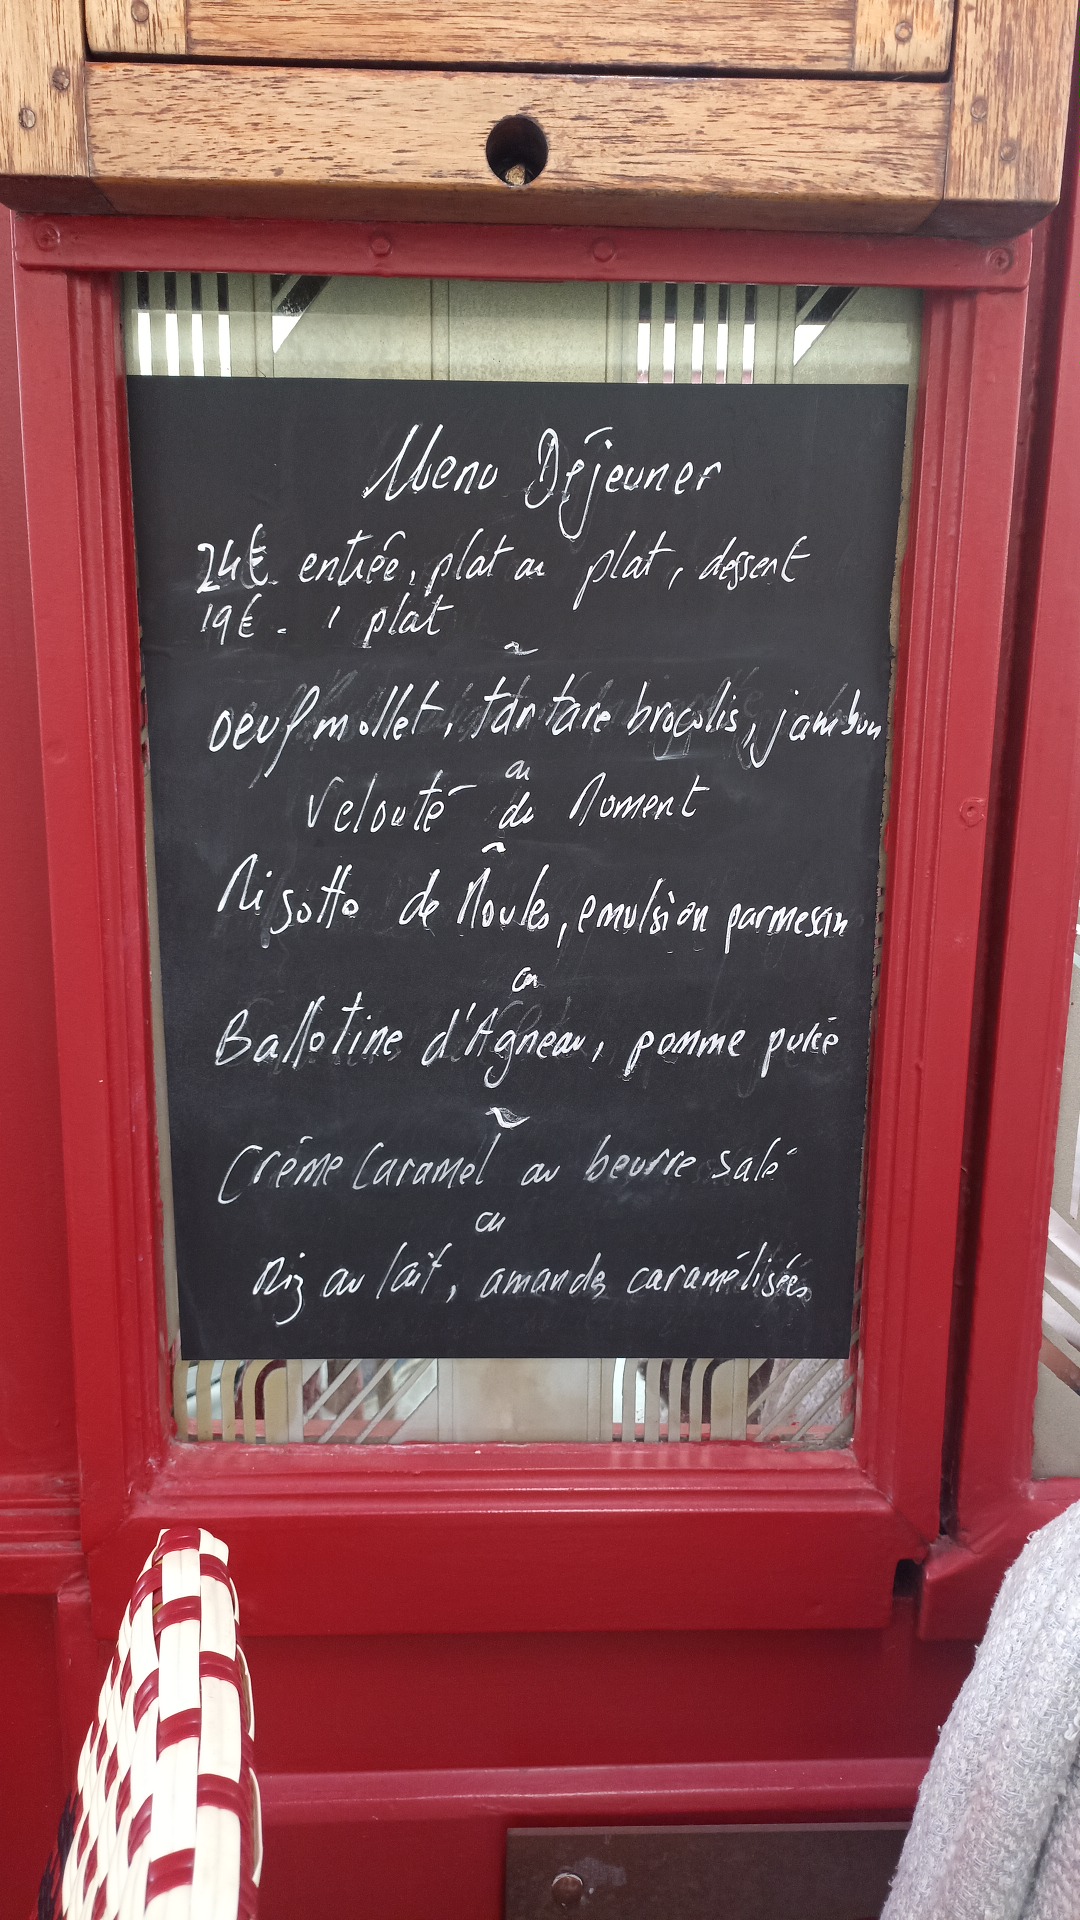 Menu Déjeuner
24€ entrée, plat ou plat, dessert
19€ - 1 plat
~
oeuf mollet, tartare brocolis, jambon
ou
Velouté du Moment
~
Risotto de Moules, émulsion parmesan
ou
Ballotine d'Agneau, pomme purée
~
Crème Caramel au beurre salé
ou
Riz au lait, amandes caramélisées